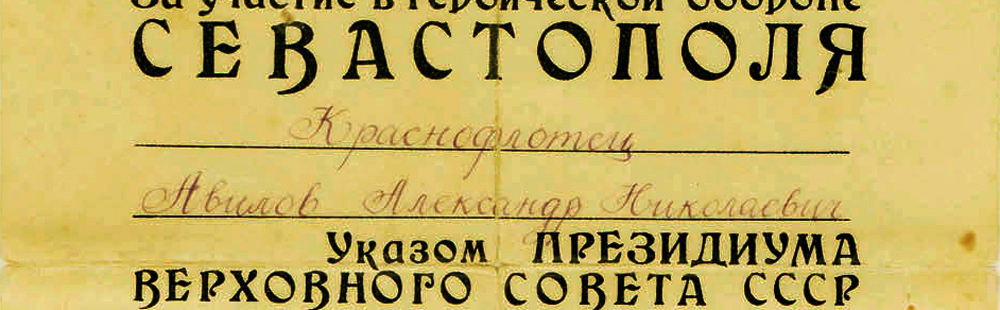 За участие в героической обороне
СЕВАСТОПОЛЯ
Краснофлотец
Авилов Александр Николаевич
Указом ПРЕЗИДИУМА
ВЕРХОВНОГО СОВЕТА СССР